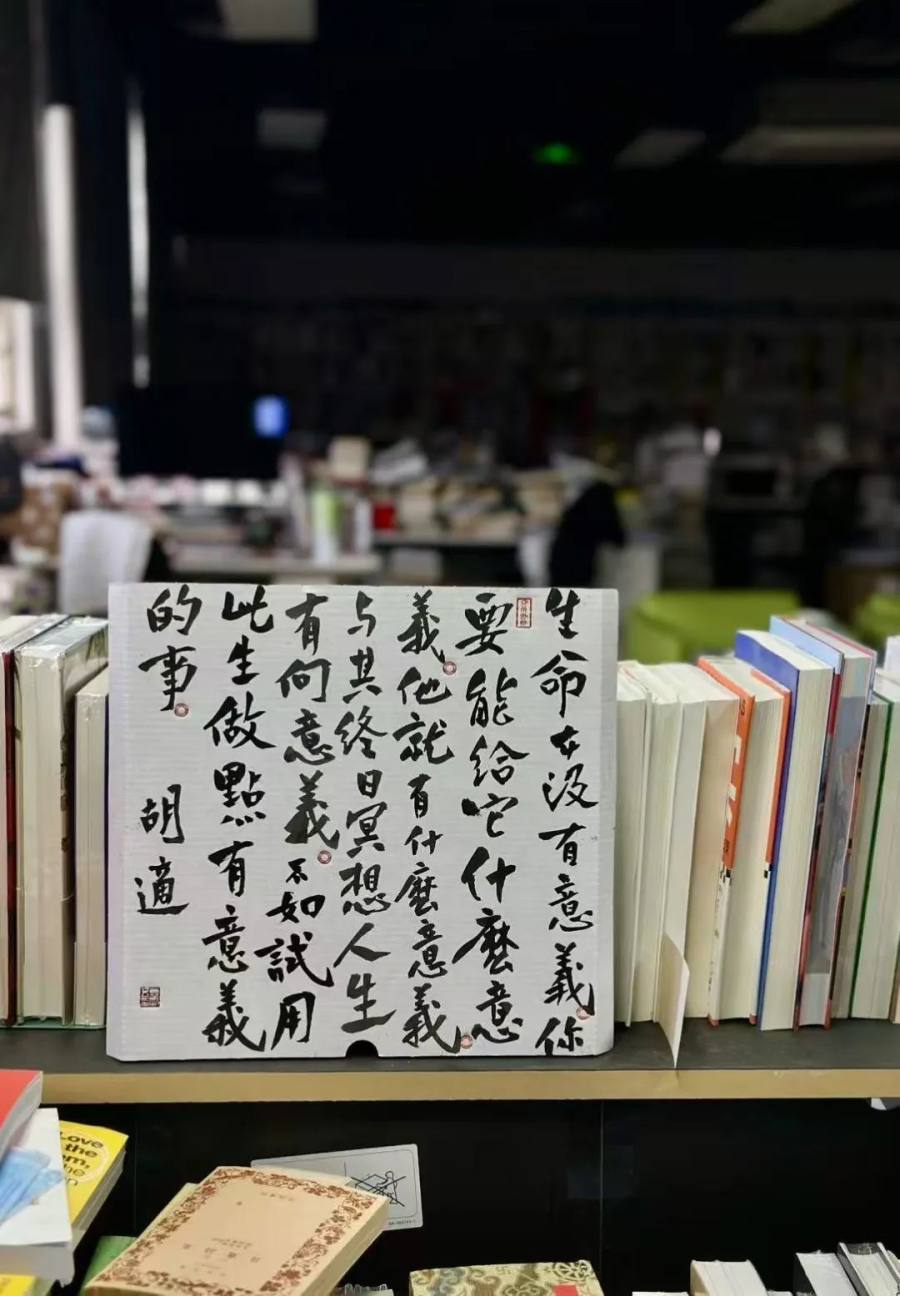 生命本没有意義。你
要能給它什麽意
義。他就有什麽意義。
与其終日冥想人生
有何意義。不如試用
此生做點有意義
的事。
胡適
Love
the